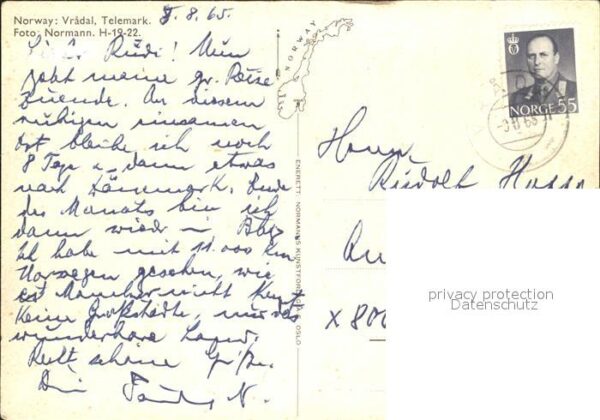 Norway: Vrådal, Telemark. 8.8.65.
Foto: Normann. H-19-22.
Rudi! Nun
geht meine gr. Reise
zuende. An diesem
ruhigen einsamen
Ort bleibe ich noch
8 Tage u. dann etwas
nach Dänemark. Ende
des Monats bin ich
dann wieder in
Ich habe mit 11.000 km
Norwegen gesehen, wie
es mancher nicht kennt
keine Großstädte, nur das
wunderbare Land.
Recht schöne Grüße
Dein
NORWAY
ENERETT NORMANNS KUNSTFORLAG A/S OSLO
NORGE 55
Herrn
Rudolf
X 800
privacy protection
Datenschutz